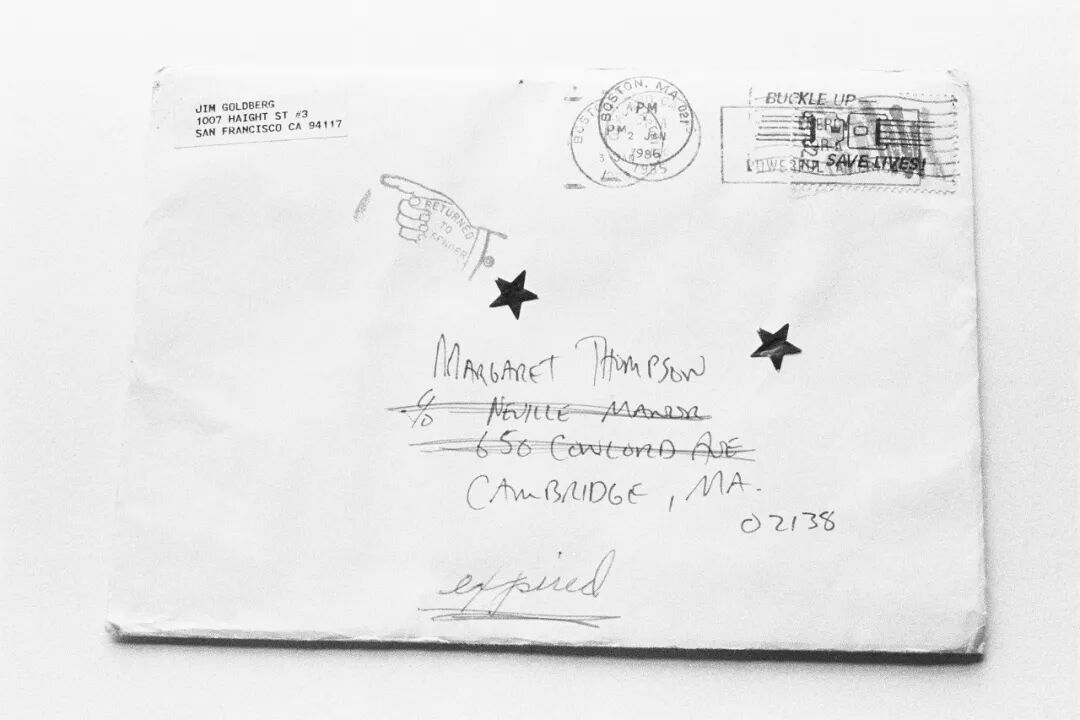 JIM GOLDBERG
1007 HAIGHT ST #3
SAN FRANCISCO CA 94117
BOSTON, MA 021
PM
2 JAN
1986
1985
BUCKLE UP
SAVE LIVES!
RETURNED
TO
SENDER
MARGARET THOMPSON
c/o NEVILLE MANOR
650 CONCORD AVE
CAMBRIDGE, MA.
02138
expired